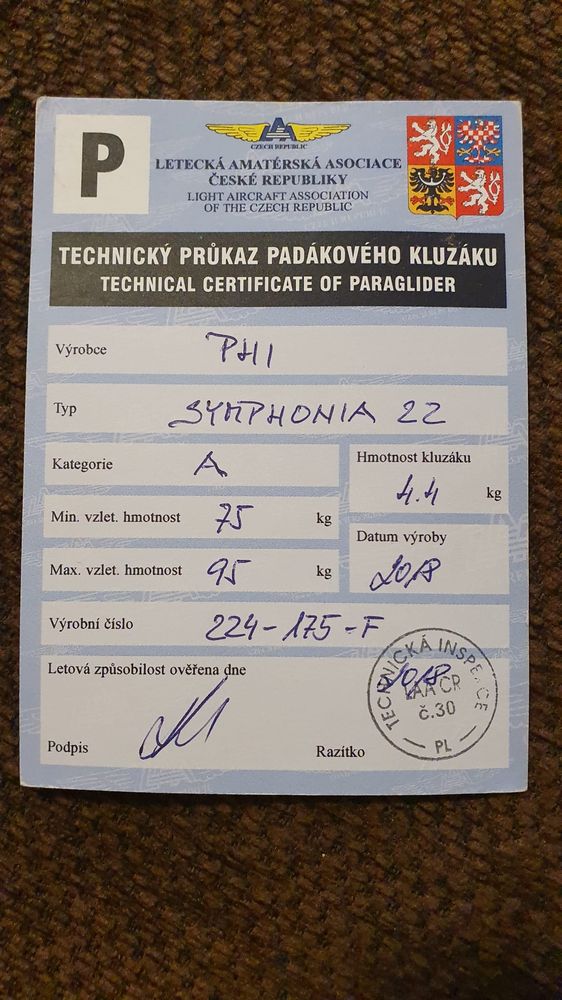 P
CZECH REPUBLIC
LETECKÁ AMATÉRSKÁ ASOCIACE
ČESKÉ REPUBLIKY
LIGHT AIRCRAFT ASSOCIATION
OF THE CZECH REPUBLIC
TECHNICKÝ PRŮKAZ PADÁKOVÉHO KLUZÁKU
TECHNICAL CERTIFICATE OF PARAGLIDER
Výrobce PHI
Typ SYMPHONIA 22
Kategorie A
Hmotnost kluzáku
4.4 kg
Min. vzlet. hmotnost 75 kg
Datum výroby
2018
Max. vzlet. hmotnost 95 kg
Výrobní číslo 224-175-F
Letová způsobilost ověřena dne 2018
TECHNICKÁ INSPEKCE
LAA ČR
č.30
PL
Podpis
Razítko